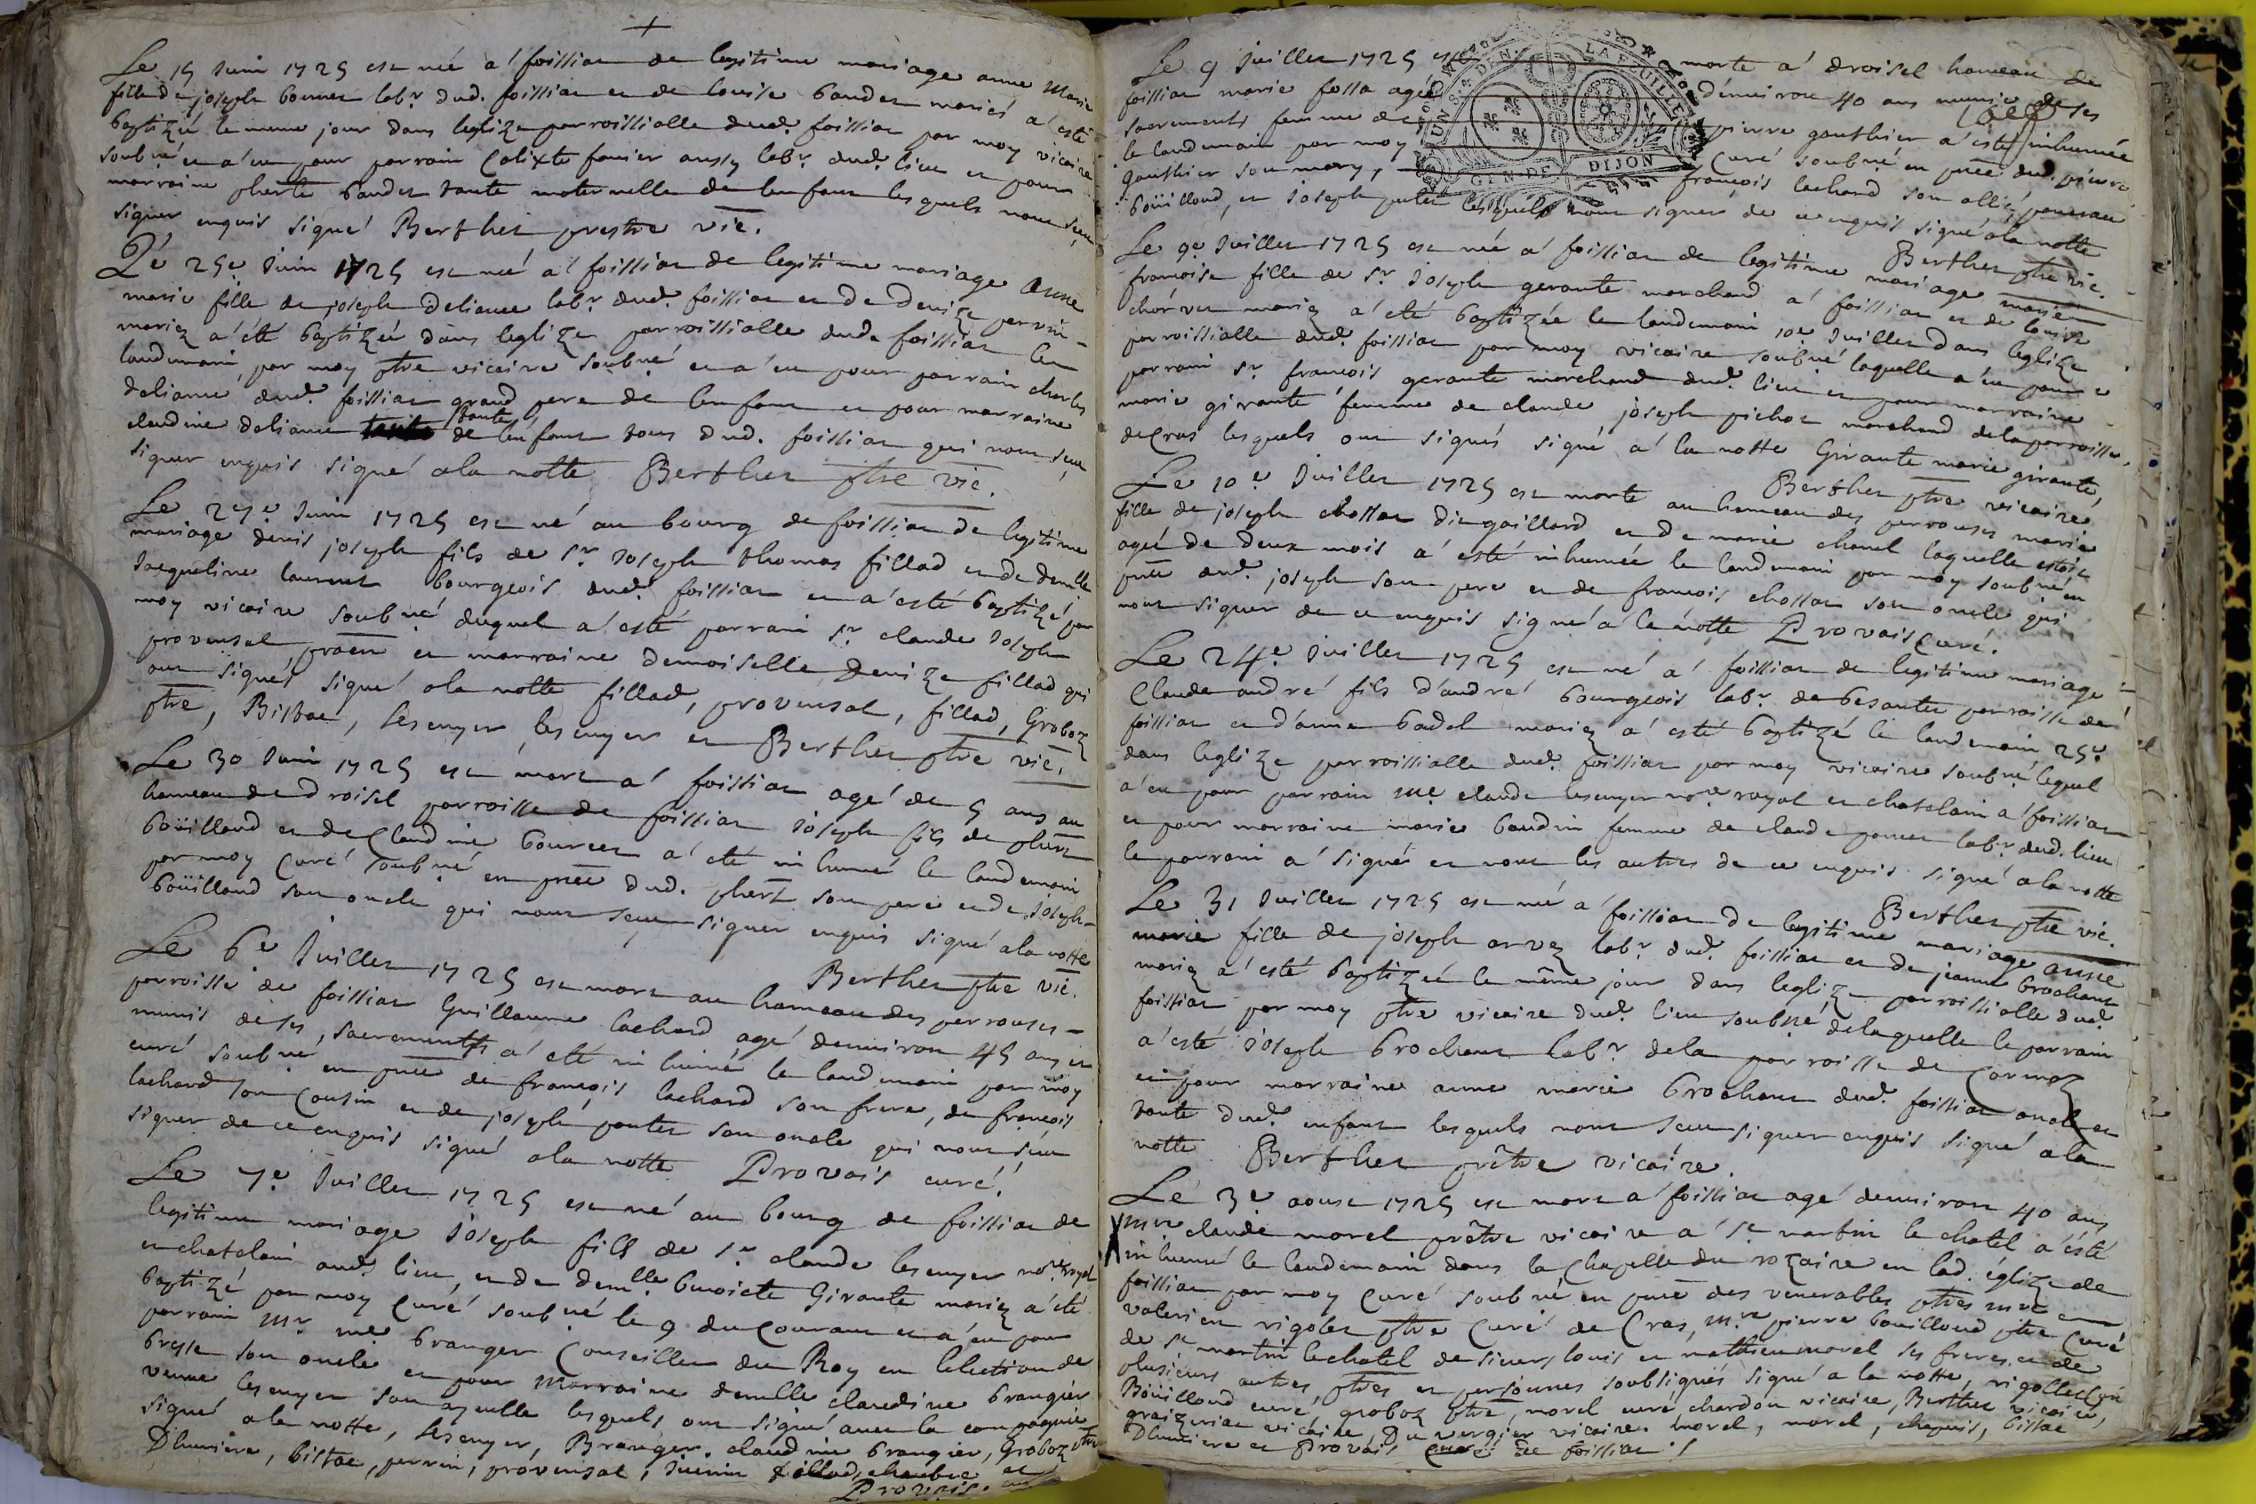 Le 15 Juin 1725 est née a foissiat de legitime mariage anne Marie
fille de joseph bonnet labr. dud. foissiat et de louise baudet mariés a esté
baptizée le meme jour dans leglize parroissialle dud. foissiat par moy vicaire
soubné et a eu pour parrain Calixte fauier aussy labr. dud. lieu et pour
marraine pherte baudet tante maternelle de lenfant lesquels nont sceu
signer enquis signé Berthet prestre vic.
Le 25e Juin 1725 est née a foissiat de legitime mariage anne
marie fille de joseph deliance labr. dud. foissiat et de denize perrin
mariez a été baptizée dans leglize parroissialle dud. foissiat le
landemain, par moy ptre vicaire soubné et a eu pour parrain charles
deliance dud. foissiat grand pere de lenfant et pour marraine
claudine deliance tante de lenfant tous dud. foissiat qui nont sceu
signer enquis signé ala notte Berthet ptre vic.
Le 27e Juin 1725 est né au bourg de foissiat de legitime
mariage denis joseph fils de sr. Joseph thomas fillod et de demlle
Jacqueline laurent bourgeois dud. foissiat et a esté baptizé par
moy vicaire soubné duquel a esté parrain sr. claude Joseph
provensal praen et marraine demoiselle denize fillod qui
ont signés signé ala notte fillod, provensal, fillod, Groboz
ptre, Bistac, lesenyer, lesenyer et Berthet ptre vic.
Le 30 Juin 1725 est mort a foissiat agé de 5 ans au
hameau de droisel parroisse de foissiat Joseph fils de phert
boüilloud et de Claudine bourcet a été inhumé le landemain
par moy Curé soubné en pnce dud. phert son pere et de Joseph
boüilloud son oncle qui nont sceu signer enquis signé ala notte
Berthet ptre vic.
Le 6e Juillet 1725 est mort au hameau des perrouses
parroisse de foissiat Guillaume lachard agé denuiron 45 ans et
munis de ses sacrements a été inhumé le landemain par moy
curé soubné en pnce de françois lachard son frere, de françois
lachard son Cousin et de joseph poutet son oncle qui nont sceu
signer de ce enquis signé ala notte Provais curé.
Le 7e Juillet 1725 est né au bourg de foissiat de
legitime mariage Joseph fils de sr. claude lesenyer nore. royal
et chatelain aud. lieu, et de demlle. benoiste Girante mariez a été
baptizé par moy Curé soubné le 9 du Courant et a eu pour
parrain Mr. me branger Conseiller du Roy en lelection de
bresse son oncle et pour Marraine demlle claudine brangier
venue lesenyer son ayeulle lesquels ont signé avec la compagnie
signé ala notte, lesenyer, Branger, claudine brangier, Groboz ptre
Dhumiere, bistac, perrin, provensal, Juenin fillod, chambre et
Provais. curé
Le 9 Juillet 1725 est morte a droisel hameau de
foissiat marie folla agée denuiron 40 ans munie de ses
sacrements femme de pierre gauthier a esté inhumée
le landemain par moy Curé soubné en pnce dud. pierre
gauthier son mary, françois lachard son allié, ponceau
boüilloud, et Joseph putet lesquels nont signer de ce enquis signé ala notte
Berthet ptre vic.
Le 9e Juillet 1725 est née a foissiat de legitime mariage marie
françoise fille de sr. Joseph gerante marchand a foissiat et de louise
chorvet mariez a été baptizée le landemain 10e Juillet dans leglize
parroissialle dud. foissiat par moy vicaire soubné laquelle a eu pour
parrain sr. françois gerante marchand dud. lieu et pour marraine
marie girante femme de claude joseph pichot marchand de la parroisse
de Cras lesquels ont signés signé a la notte Girante marie girante,
Berthet ptre vicaire
Le 10e Juillet 1725 est morte au hameau des perrouses marie
fille de joseph chossat dit gaillard et de marie chanel laquelle estoit
agée de deux mois a esté inhumée le landemain par moy soubné en
pnce dud. joseph son pere et de francois chossat son oncle qui
nont signer de ce enquis signé a la notte Provais Curé.
Le 24e Juillet 1725 est né a foissiat de legitime mariage
Claude andré fils d'andré bourgeois labr. de besantet parroisse de
foissiat et d'anne badel mariez a esté baptizé le landemain 25e
dans leglize parroissialle dud. foissiat par moy vicaire soubné lequel
a eu pour parrain me. claude lesenyer nore. royal et chatelain a foissiat
et pour marraine marie baudin femme de claude poncet labr. dud. lieu
le parrain a signé et nont les autres de ce enquis signé ala notte
Berthet ptre vic.
Le 31 Juillet 1725 est née a foissiat de legitime mariage anne
marie fille de joseph arvez labr. dud. foissiat et de jeanne brochant
mariez a esté baptizée le même jour dans leglize parroissialle dud.
foissiat par moy ptre vicaire dud. lieu soubné delaquelle le parrain
a esté Joseph brochant labr. dela parroisse de Cormoz
et pour marraine anne marie brochant dud. foissiat oncle et
tante dud. enfant lesquels nont sceu signer enquis signé ala
notte Berthet prêtre vicaire.
Le 3e aoust 1725 est mort a foissiat agé denuiron 40 ans
Mre. claude morel prêtre vicaire a st. martin le chatel a esté
inhumé le landemain dans la Chapelle du rozaire en lad. églize de
foissiat par moy Curé soubné en pnce des venerables ptres mre
valerien rigolet ptre Curé de Cras, mre pierre bouilloud ptre curé
de st martin lechatel de sieurs louis et mathieu morel ses freres et de
plusieurs autres ptres et personnes soubsignés signé a la notte, rigollet curé
Boüilloud curé, groboz ptre, morel curé, chardon vicaire, Berthet vicaire,
graizeriat vicaire, Du vergier vicaire. morel, morel, chapuis, bistac
Dhumiere et Provais Curé de foissiat
GEN. DE DIJON
LA FEUILLE